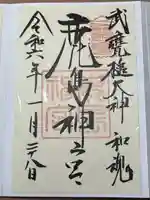 武甕槌大神 和魂
鹿島神宮
令和六年一月二八日